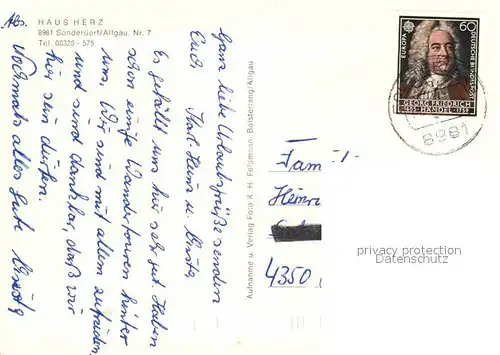 Abs. HAUS HERZ
8961 Sonderdorf/Allgäu, Nr. 7
Tel. 08326 - 575
Ganz liebe Urlaubsgrüße senden
Euch
Karl-Heinz u. Christa
Es gefällt uns hier sehr gut. Haben
schon einige Wandertouren hinter
uns. Wir sind mit allem zufrieden,
und sind dankbar, daß wir
hier sein dürfen.
Nochmals alles Gute
Aufnahme u. Verlag Foto K. H. Feldmann, Bolsterlang/Allgäu
60
EUROPA
DEUTSCHE BUNDESPOST
GEORG FRIEDRICH
1685 · HÄNDEL · 1759
8981
Fam
Heinr
4350
privacy protection
Datenschutz